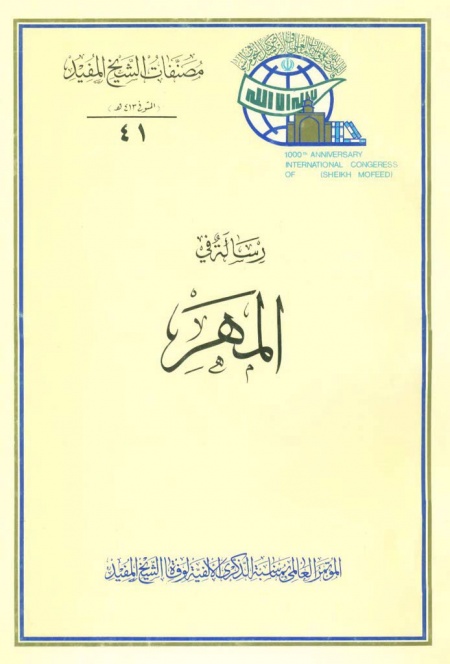 مصنفات الشيخ المفيد
(المتوفى ٤١٣ هـ)
٤١
لا إله إلا الله
1000th ANNIVERSARY
INTERNATIONAL CONGERESS
OF (SHEIKH MOFEED)
رِسَالَةٌ فِي
المَهْرِ
المؤتمر العالمي بمناسبة الذكرى الألفية لوفاة الشيخ المفيد